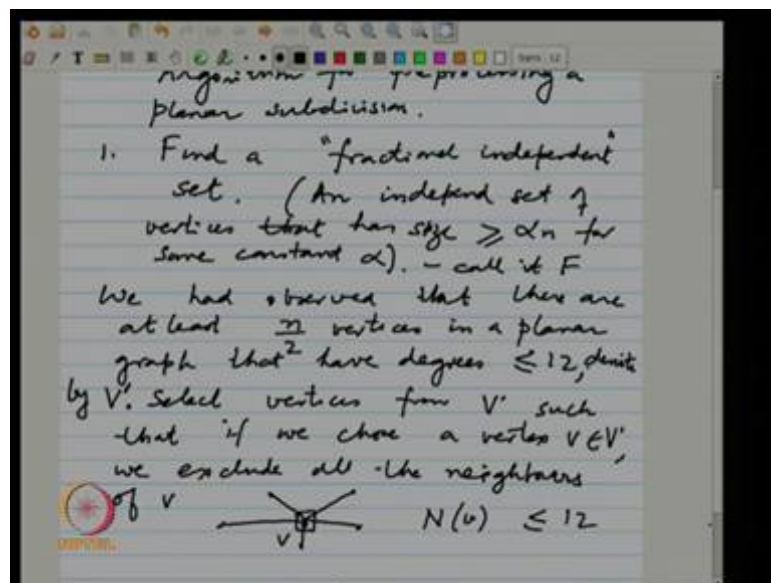 Algorithm for preprocessing a
planar subdivision.
1. Find a "fractional independent"
set. (An independ set of
vertices that has size ≥ αn for
some constant α). - call it F
We had observed that there are
at least n/2 vertices in a planar
graph that have degrees ≤ 12, denote
by V'. Select vertices from V' such
that if we chose a vertex v ∈ V',
we exclude all the neighbours
of v
v N(v) ≤ 12